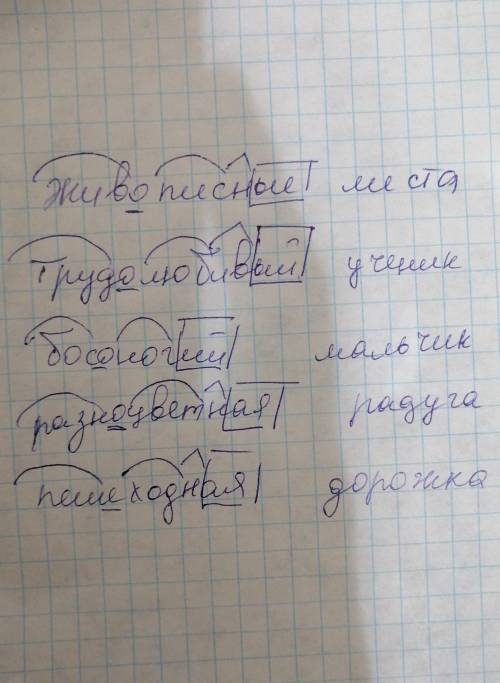 живописные места
трудолюбивый ученик
босоногий мальчик
разноцветная радуга
пешеходная дорожка